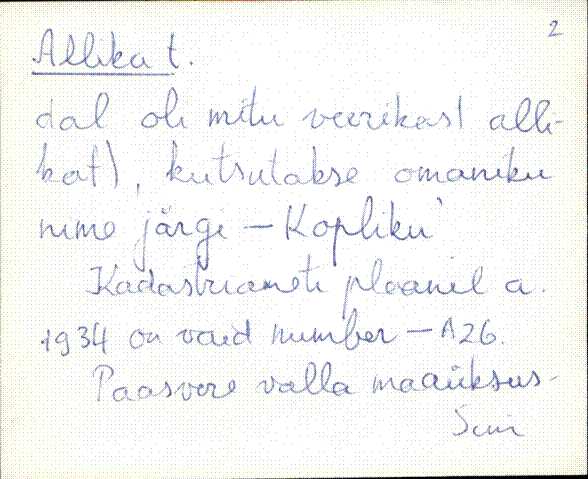 2
Allika t.
dal oli mitu veerikast alli-
kat), kutsutakse omaniku
nime järgi – Kopliku'
Kadastriameti plaanil a.
1934 on vaid number – A26.
Paasvere valla maaüksus-